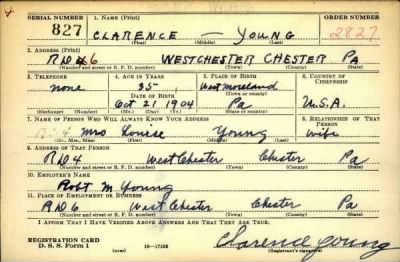 SERIAL NUMBER 1. NAME (Print) ORDER NUMBER
827 CLARENCE — YOUNG 2827
(First) (Middle) (Last)
2. ADDRESS (Print)
RD #6 WESTCHESTER CHESTER PA
(Number and street or R. F. D. number) (Town) (County) (State)
3. TELEPHONE 4. AGE IN YEARS 5. PLACE OF BIRTH 6. COUNTRY OF CITIZENSHIP
none 35 Westmoreland
DATE OF BIRTH (Town or county)
Oct 21 1904 Pa U.S.A.
(Exchange) (Number) (Mo.) (Day) (Yr.) (State or country)
7. NAME OF PERSON WHO WILL ALWAYS KNOW YOUR ADDRESS 8. RELATIONSHIP OF THAT PERSON
Mrs Louise Young wife
(Mr., Mrs., Miss) (First) (Middle) (Last)
9. ADDRESS OF THAT PERSON
RD 4 West Chester Chester Pa
(Number and street or R. F. D. number) (Town) (County) (State)
10. EMPLOYER'S NAME
Robt M Young
11. PLACE OF EMPLOYMENT OR BUSINESS
RD 6 West Chester Chester Pa
(Number and street or R. F. D. number) (Town) (County) (State)
I AFFIRM THAT I HAVE VERIFIED ABOVE ANSWERS AND THAT THEY ARE TRUE.
REGISTRATION CARD Clarence Young
D. S. S. Form 1 (over) 16—17105 (Registrant's signature)